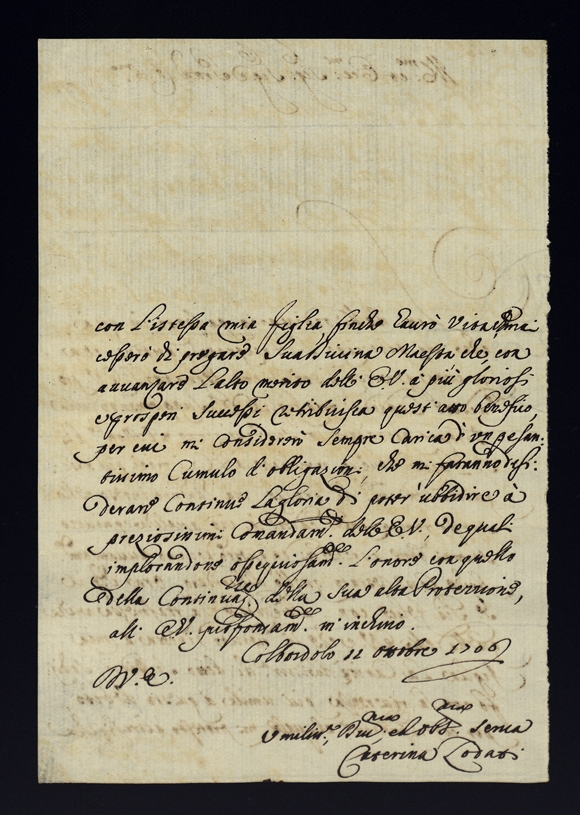 con L'istessa mia figlia finche haurò vita, mai
cesserò di pregare Sua Divina Maestà che con
avvanzare L'alto merito dell' E.V. à più gloriosi
e prosperi successi retribuisca quest' atto benefico,
per cui mi considererò sempre carica d'un pesan:
tissimo Cumulo di obligazioni, che mi faranno desi:
derare Continuo La gloria di poter ubbidire à
preziosissimi Comandam.ti dell' E.V., de quali
implorandone ossequiosam.te L'onore con quello
della Continua.ne della Sua alta Protezzione,
all' E.V. profondam.te m'inchino.
Colbordolo 11 ottobre 1706
D.V.E.
Umiliss.ma Div.ma ed Obb.ma Serva
Caterina Lodati